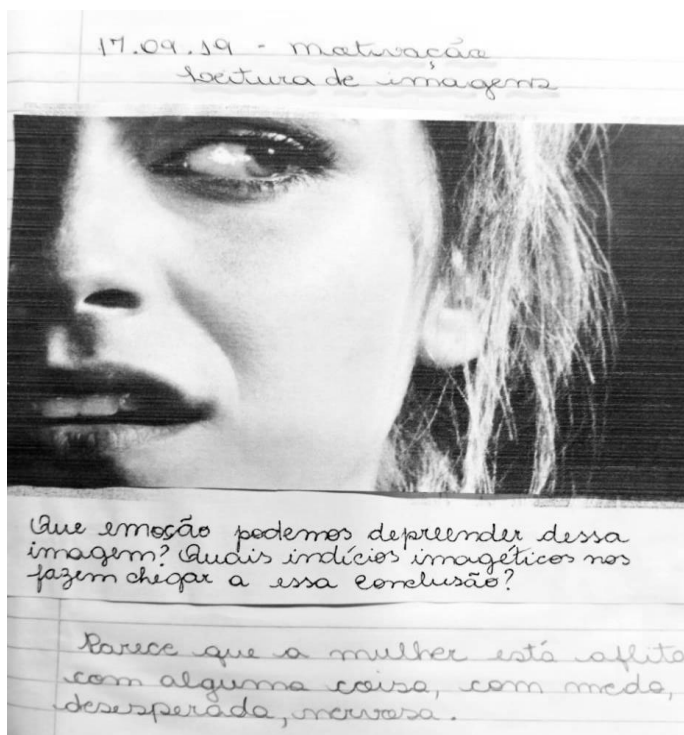 17.09.19 - Motivação
Leitura de imagens
Que emoção podemos depreender dessa
imagem? Quais indícios imagéticos nos
fazem chegar a essa conclusão?
Parece que a mulher está aflita
com alguma coisa, com medo,
desesperada, nervosa.